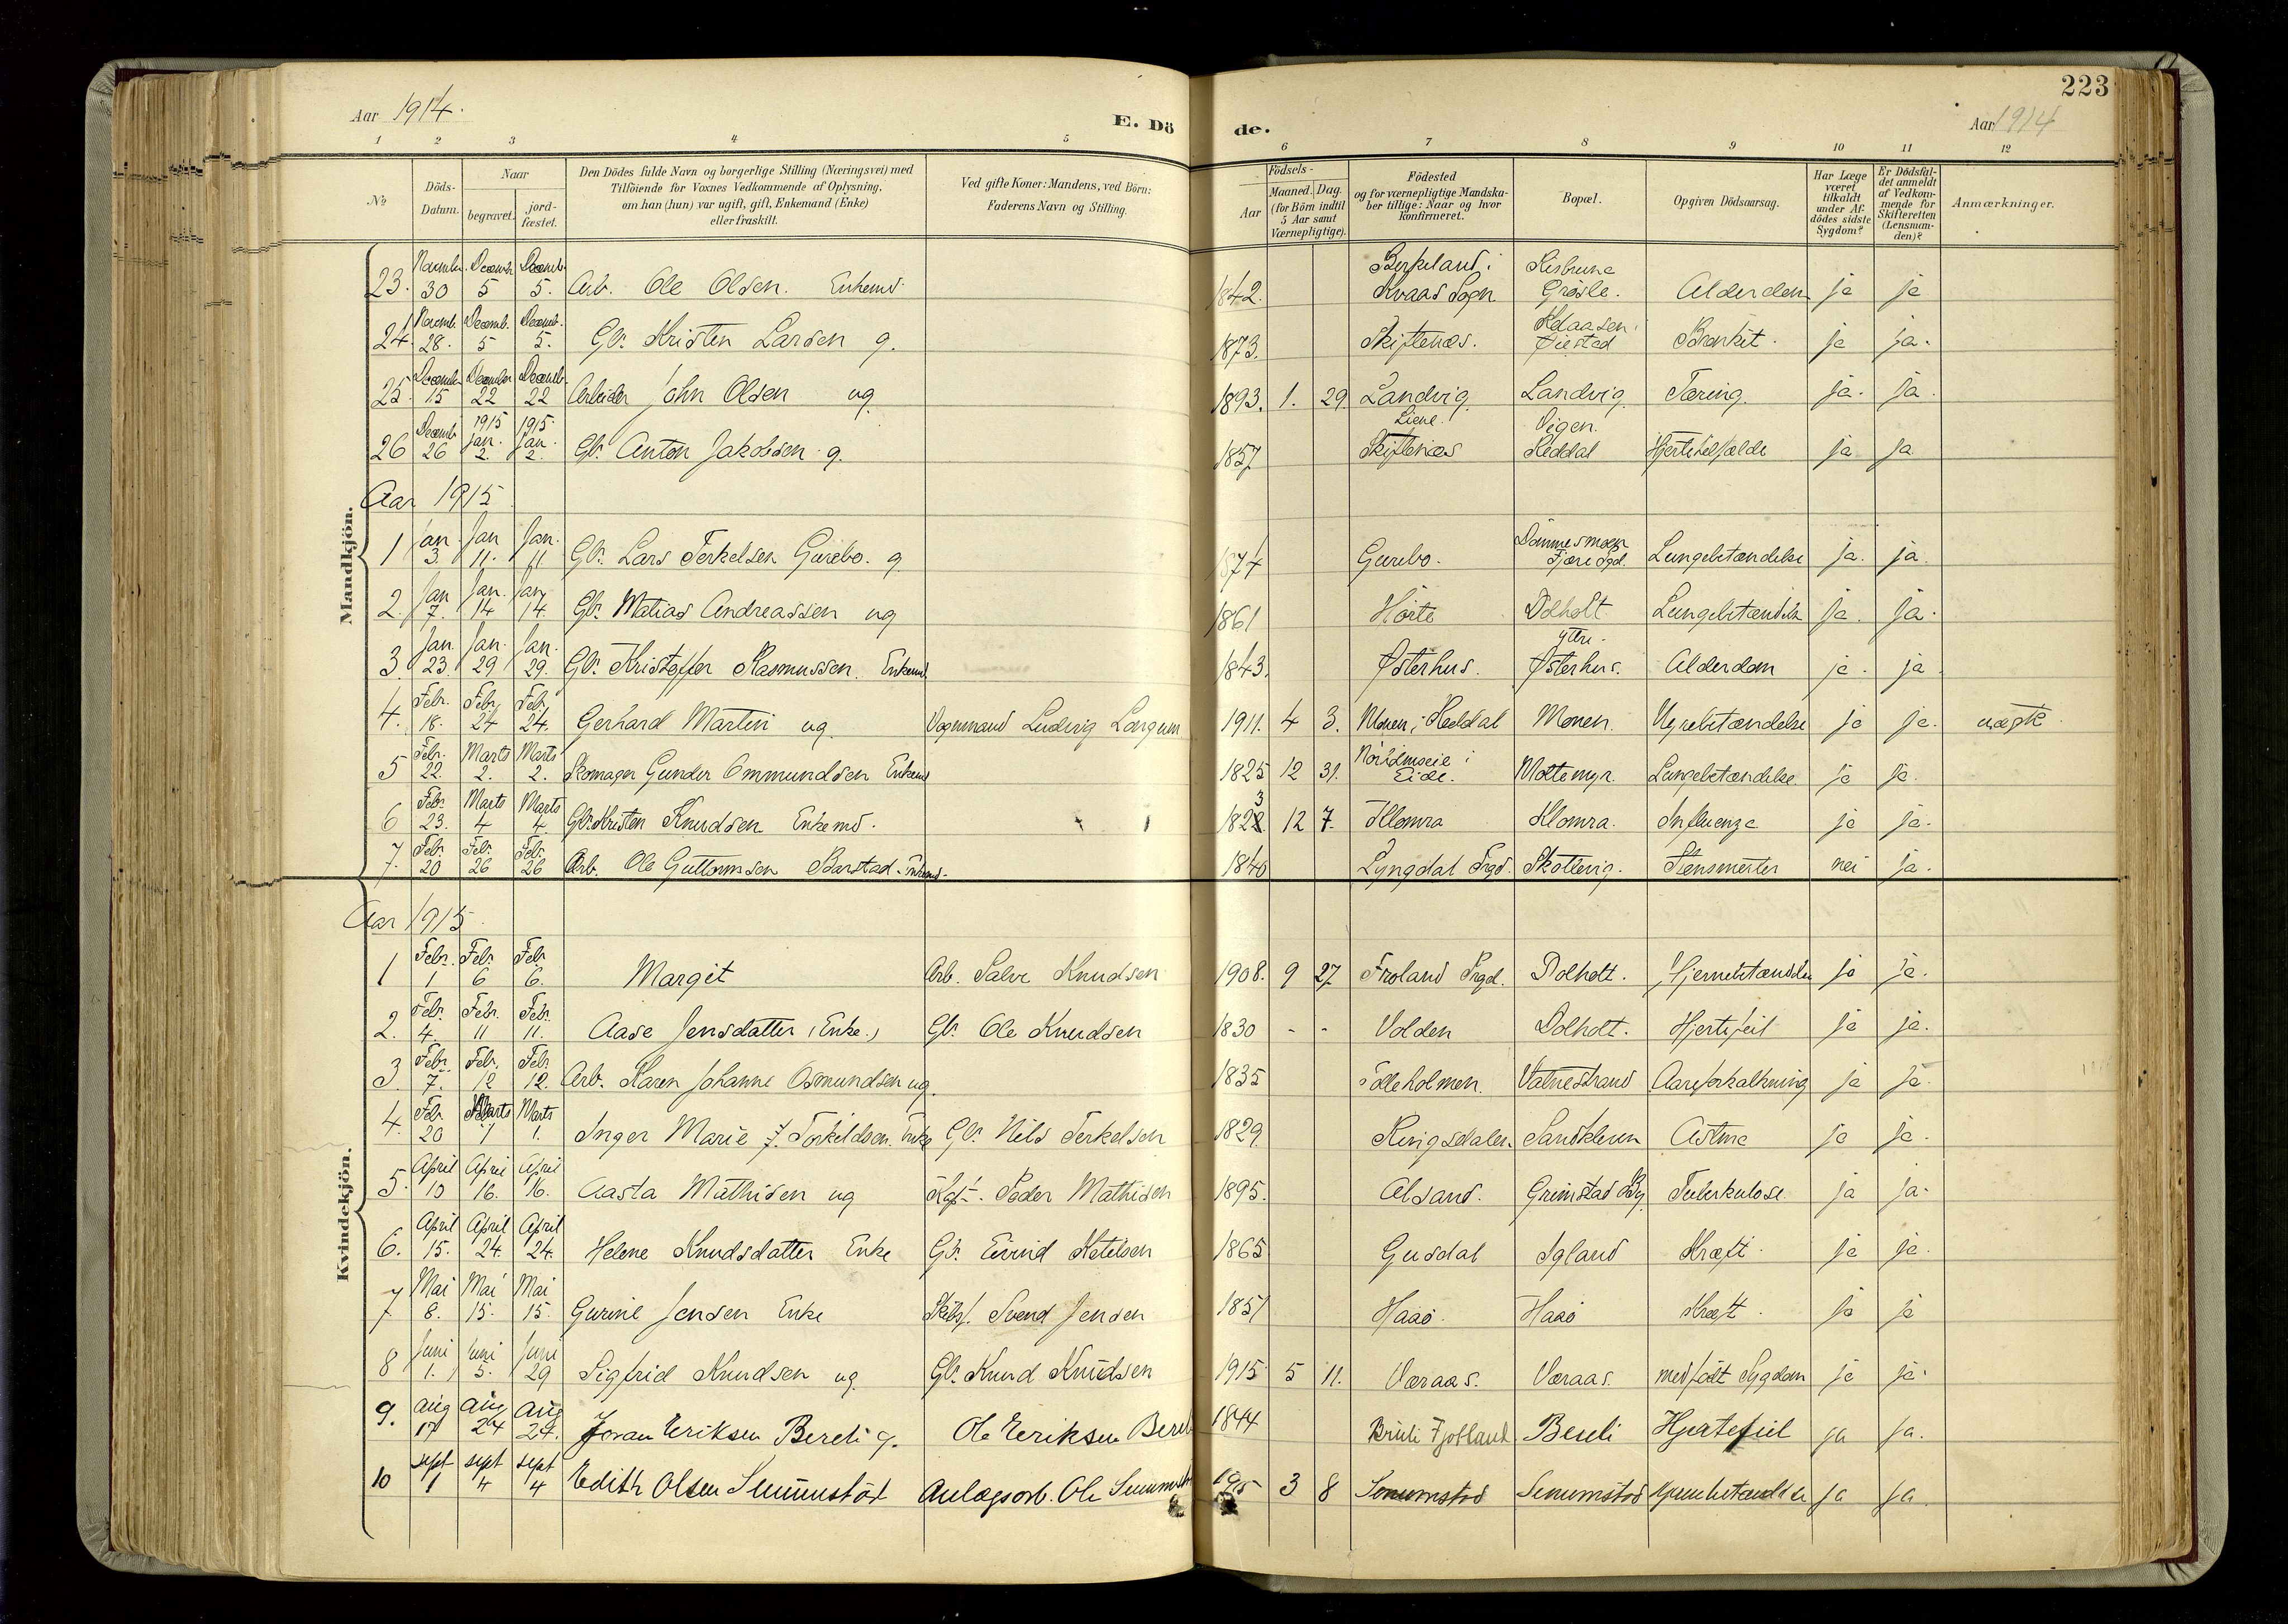 223
Aar 1914. E. Dö de. Aar 1914
1 2 3 4 5 6 7 8 9 10 11 12
No Döds-Datum. Naar begravet. jordfæstet. Den Dödes fulde Navn og borgerlige Stilling (Næringsvei) med Tilföiende for Voxnes Vedkommende af Oplysning, om han (hun) var ugift, gift, Enkemand (Enke) eller fraskilt. Ved gifte Koner: Mandens, ved Börn: Faderens Navn og Stilling. Födsels- Aar Maaned. Dag. (for Börn indtil 5 Aar samt Værnepligtige). Födested og for værnepligtige Mandskaber tillige: Naar og hvor konfirmeret. Bopæl. Opgiven Dödsaarsag. Har Læge været tilkaldt under Afdödes sidste Sygdom? Er Dödsfaldet anmeldt af Vedkommende for Skifteretten (Lensmanden)? Anmærkninger.
Mandkjön.
23. Novemb. 30 Decemb. 5 Decemb. 5. Arb. Ole Olsen. Enkemd. 1842. Birkeland i Kvaas Sogn Grøsle. Alderdom ja ja
24. Novemb. 28. Decemb. 5 Decemb. 5. Gbr. Kristen Larsen g. 1873. Skiftenæs. Øiestad Bronkit. ja ja.
25. December 15 December 22 Decemb. 22 Arbeider John Olsen ug 1893. 1. 29. Landvig Landvig. Tæring. ja. ja.
26 Decemb 26 1915 Jan. 2. 1915 Jan. 2. Gbr. Anton Jakobsen g. 1857 Liene. Skiftenæs Vigen. Heddal ja ja
Aar 1915
1 Jan. 3. Jan 11. Jan. 11 Gbr. Lars Terkelsen Gurebo. g 1874 Gurebo. Dømmesmoen Fjære Sgd. Lungebetændelse ja. ja.
2. Jan 7. Jan. 14 Jan. 14. Gbr. Matias Andreassen ug 1861 Hørte Dolholt Lungebetændelse ja. ja.
3. Jan. 23. Jan. 29 Jan. 29. Gbr. Kristoffer Rasmussen. Enkemd. 1843. Østerhus. Ytre. Østerhus. Alderdom ja. ja
4. Febr. 18. Feb. 24 Feb. 24. Gerhard Martin ug. Vognmand Ludvig Langum 1911. 4 3. Monen i Heddal Monen. Nyrebetændelse ja ja. uægte.
5 Feb. 22. Marts 2. Marts 2. Skomager Gunder Ommundsen Enkemd 1825 12 31. i Eide. Moltemyr. Lungebetændelse. ja ja.
6 Febr. 23. Marts 4 Marts 4. Gbr. Kristen Knudsen Enkemd. 1823 12 7. Klomra Klomra. Influenza ja ja.
7. Feb. 20 Feb. 26 Feb. 26 Arb. Ole Guttormsen Barstad. Enkemd. 1840 Lyngdal Prgd. Skottevig. nei ja.
Kvindekjön.
Aar 1915.
1 Febr. 1 Feb. 6 Feb. 6. Margit Arb. Salve Knudsen 1908. 9 27. Froland Prgd. Dolholt. Hjernebetændelse ja ja.
2. Febr. 4. Febr. 11 Febr. 11. Aase Jensdatter (Enke.) Gbr. Ole Knudsen 1830 - - Volden Dolholt. Hjertefeil ja ja.
3. Febr. 7. Feb. 12 Feb. 12. Arb. Karen Johanne Osmundsen ug. 1835 Tolleholmen. Vatnestrand Aareforkalkning ja ja.
4. Feb. 20 Marts 1 Marts 1. Inger Marie J. Torkildsen. Enke Gbr. Nils Terkelsen 1829. Ringsdalen. Sandkleiven Astma ja ja.
5. April 10 April 16. April 16. Aasta Mathisen ug Peder Mathisen 1895. Alsand. Grimstad By. Tuberkulose. ja ja.
6. April 15. April 24. April 24. Helene Knudsdatter Enke Gbr. Eivind Ketelsen 1865 Gusdal Igland Kræft. ja ja.
7 Mai 8. Mai 15. Mai 15. Gurine Jensen Enke Skibsf. Svend Jensen 1857 Haaö. Haaö Kræft. ja ja
8 Juni 1. Juni 5. Juni 29 Sigfrid Knudsen ug. Gbr. Knud Knudsen 1915 5 11. Væraas. Væraas. medfødt Sygdom ja ja.
9. Aug 17 Aug 24 Aug 24. Joran Eriksen Bereli g. Ole Eriksen Bereli 1844 Fjotland Bereli Hjertefeil ja ja.
10 sept 1 sept 4 sept 4 Edith Olsen Senumstöd Anlægsarb. Ole Senumstöd 1915 3 8 Senumstöd Senumstöd ja ja